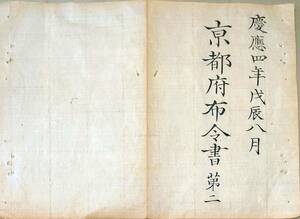 慶應四年戊辰八月
京都府布令書 第二